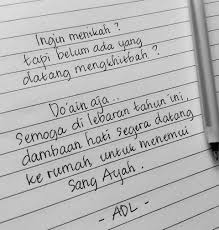 Ingin menikah ?
tapi belum ada yang
datang mengkhitbah ?
Do'ain aja..
Semoga di lebaran tahun ini,
dambaan hati segera datang
ke rumah untuk menemui
Sang Ayah.
- ADL -